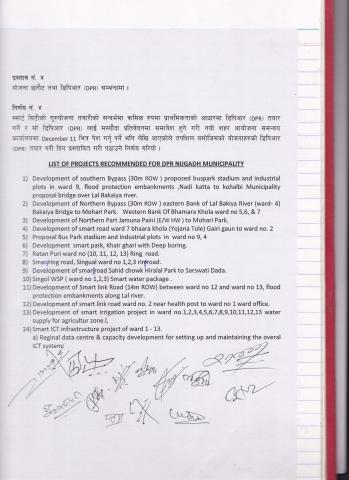 प्रस्ताव नं. ४
योजना छनौट तथा डिपिआर (DPR) सम्बन्धमा ।
निर्णय नं. ४
स्मार्ट सिटीको गुरुयोजना तयारीको सन्दर्भमा क्रमिक रुपमा प्राथमिकताको आधारमा डिपिआर (DPR) तयार
गर्ने र सो डिपिआर (DPR) लाई मस्यौदा प्रतिवेदनमा समावेश हुने गरी नयाँ शहर आयोजना समन्वय
कार्यालयमा December 11 भित्र पेश गर्नु पर्ने भनि लेखि आएकोले तपशिल बमोजिमको योजनाहरुको डिपिआर
(DPR) तयार गरी दिन प्रस्तावित गरी पठाउने निर्णय गरियो ।
LIST OF PROJECTS RECOMMENDED FOR DPR NIJGADH MUNICIPALITY
1) Development of southern Bypass (30m ROW ) proposed buspark stadium and industrial
plots in ward 9, flood protection embankments ,Nadi katta to kohalbi Municipality
proposal bridge over Lal Bakaiya river.
2) Development of Northern Bypass (30m ROW ) eastern Bank of Lal Bakiya River (ward- 4)
Bakaiya Bridge to Mohari Park. Western Bank Of Bhamara Khola ward no 5,6, & 7
3) Development of Northern Part Jamuna Paini (E/W HW ) to Mohari Park.
4) Development of smart road ward 7 bhaara khola (Yojana Tole) Gairi gaun to ward no. 2
5) Proposal Bus Park stadium and Industrial plots in ward no 9, 4
6) Development smart park, Khair ghari with Deep boring.
7) Ratan Puri ward no (10, 11, 12, 13) Ring road.
8) Smart ring road, Singual ward no 1,2,3 rin road.
9) Development of smart road Sahid chowk Hiralal Park to Sarswati Dada.
10) Singol WSP ( ward no 1,2,3) Smart water package .
11) Development of Smart link Road (14m ROW) between ward no 12 and ward no 13, flood
embankments along Lal river.
12) Development of smart link road ward no. 2 near health post to ward no 1 ward office.
13) Development of smart irrigation project in ward no.1,2,3,4,5,6,7,8,9,10,11,12,13 water
supply for agricultur zone.l,
14) Smart ICT infrastructure project of ward 1 - 13.
a) Reginal data centre & capacity development for setting up and maintaining the overal
ICT system/